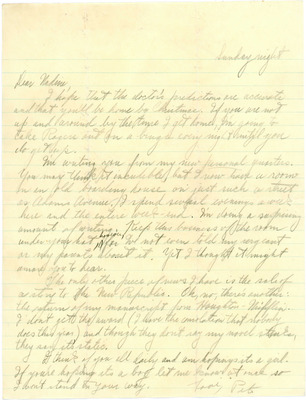 Sunday night
Dear Nadine,
I hope that the doctor's predictions are accurate
and that you'll be home by Christmas. If you are not
up and around by the time I get home, I'm going to
take Roger out on a binge every night until you
do get up.
I'm writing you from my new personal quarters.
You may think it incredible, but I now have a room
in an old boarding house on just such a street
as Adams Avenue. I spend several evenings a week
here and the entire week-end. I'm doing a surprising
amount of writing. Keep this business of the room
under your hat for I've not even told my sergeant
or my parents about it. Yet I thought it might
amuse you to hear.
The only other piece of news I have is the sale of
a story to the New Republic. Oh, no, there's another:
the return of my manuscript from Houghton Mifflin.
I don't get the award, (I have the consolation that nobody
does this year) and though they don't say my novel stinks,
they say it's static.
I think of you all daily and am hoping it's a girl.
If you're hoping it's a boy let me know at once so
I don't stand in your way.
Love, Pete